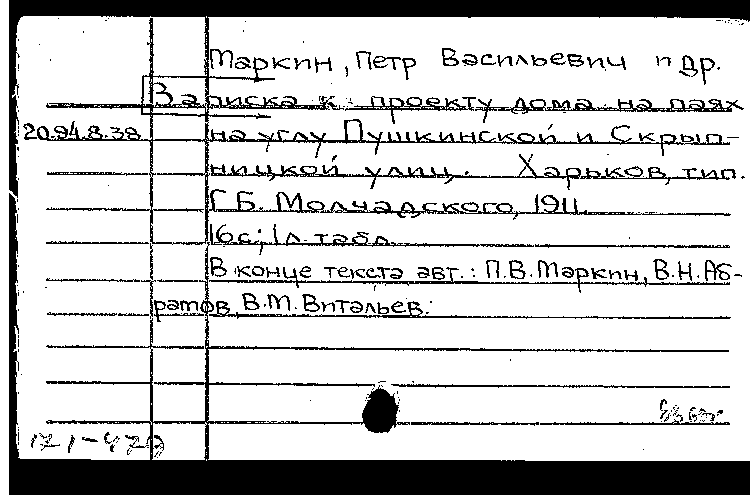 Маркин, Петр Васильевич и др.
Записка к проекту дома на паях
20.94.8.38 на углу Пушкинской и Скрып-
ницкой улиц. Харьков, тип.
Г.Б. Молчадского, 1911.
16с; 1л. табл.
В конце текста авт.: П.В. Маркин, В.Н. Аб-
рамов, В.М. Витальев.